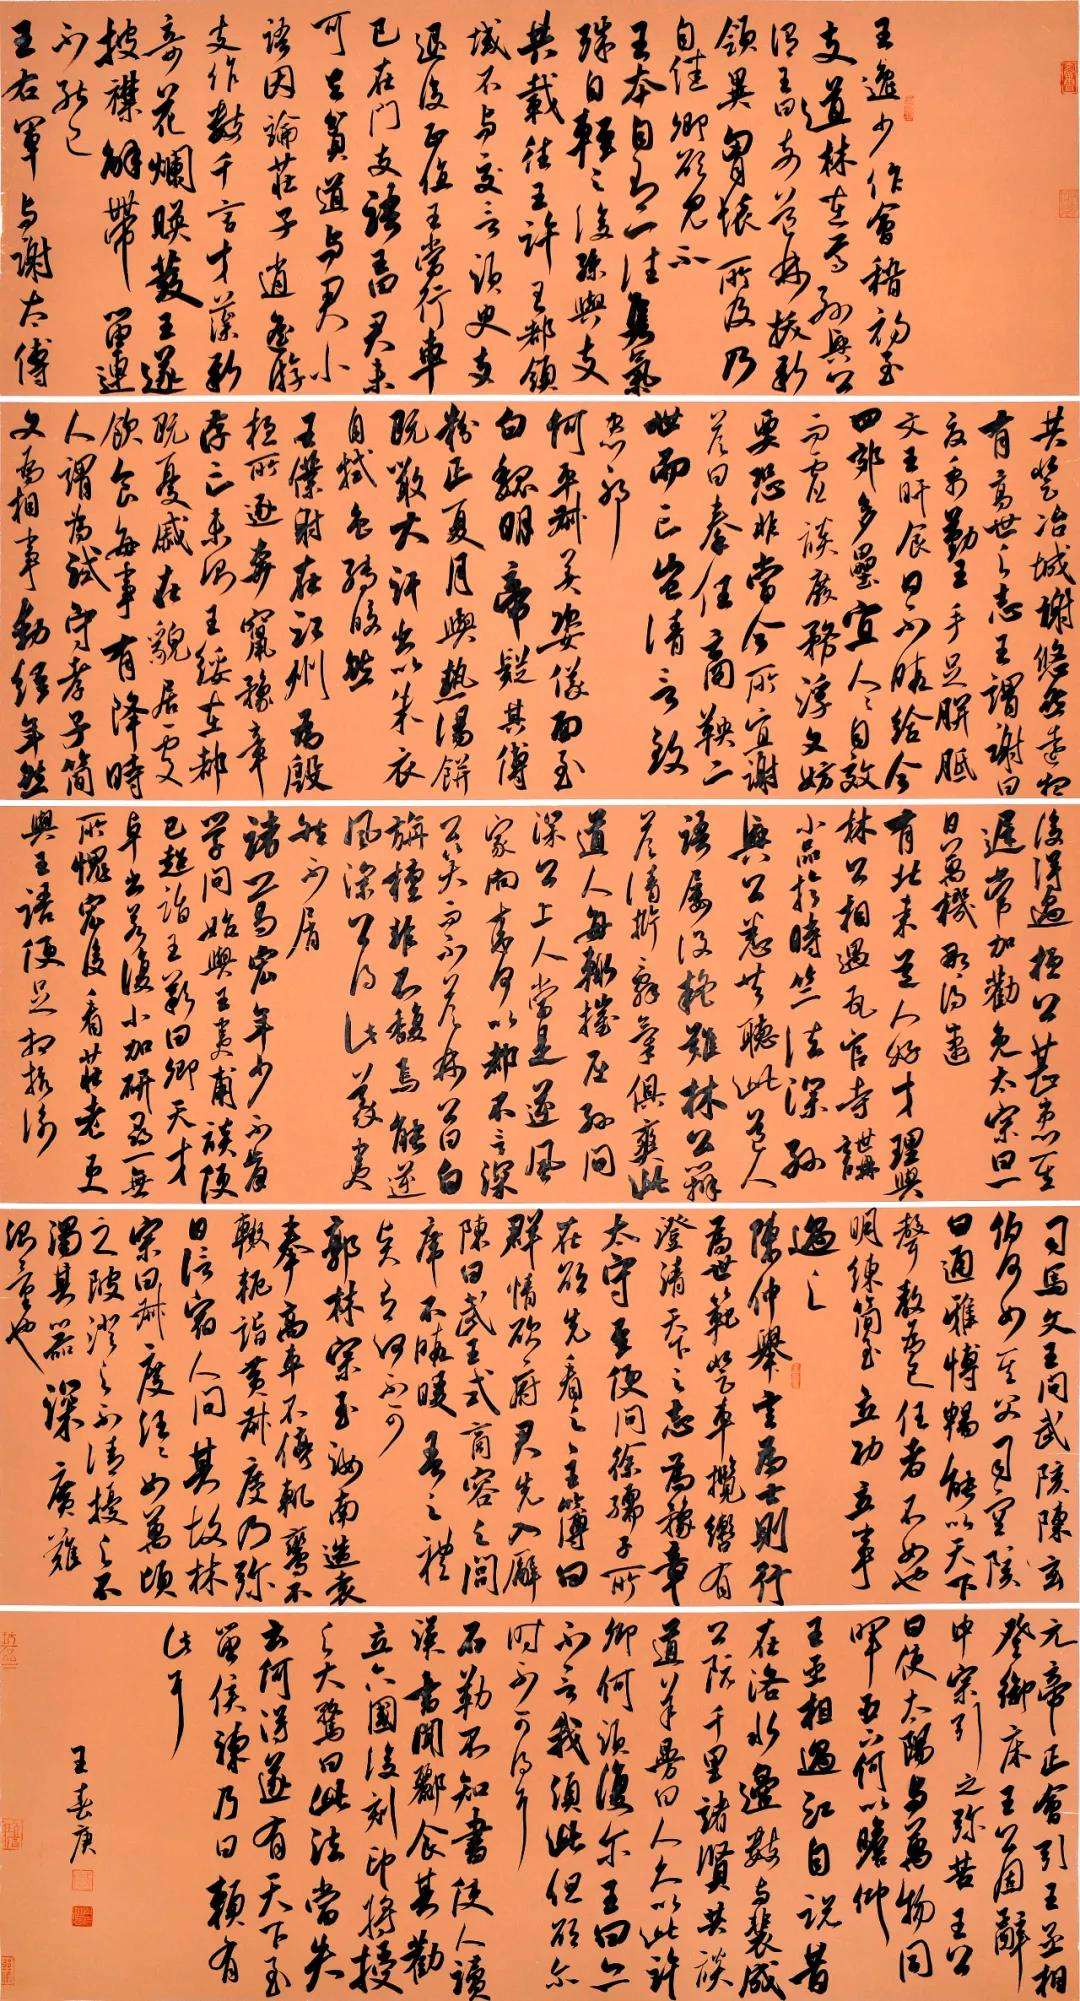 王逸少作會稽初至
支道林在焉孫興公
謂王曰支道林拔新
領異胸懷所及乃
自佳卿欲見不
王本自有一往雋氣
殊自輕之後孫與支
共載往王許王都領
域不與交言須臾支
退後正值王當行車
已在門支語王曰君未
可去貧道與君小
語因論莊子逍遙游
支作數千言才藻新
奇花爛暎發王遂
披襟解帶留連
不能已
王右軍与謝太傅
共登冶城謝悠然遠想
有高世之志王謂謝曰
夏禹勤王手足胼胝
文王旰食日不暇給今
四郊多壘宜人人自效
而虛談廢務浮文妨
要恐非當今所宜謝
答曰秦任商鞅二
世而亡豈清言致
患邪
何平叔美姿儀面至
白魏明帝疑其傅
粉正夏月與熱湯餅
既噉大汗出以朱衣
自拭色轉皎然
王僕射在江州為殷
桓所逐奔竄豫章
存亡未測王綏在都
既憂戚在貌居處
飲食每事有降時
人謂為試守孝子簡
文為相事動經年然
後得過桓公甚患其
遲常加勸免太宗曰一
日萬機那得速
有北來道人好才理與
林公相遇瓦官寺講
小品於時竺法深孫
興公悉共聽此道人
語屢設疑難林公辯
答清析辭氣俱爽此
道人每輒摧屈孫問
深公上人當是逆風
家向來何以都不言深
公笑而不答林公曰白
旃檀非不馥焉能逆
風深公得此義夷
然不屑
諸葛宏年少不肯
學問始與王夷甫談便
已超詣王歎曰卿天才
卓出若復小加研尋一無
所愧宏後看莊老更
與王語便足相抗衡
司馬文王問武陔陳玄
伯何如其父司空陔
曰通雅博暢能以天下
聲教為己任者不如也
明練簡至立功立事
過之
陳仲舉言為士則行
為世範登車攬轡有
澄清天下之志為豫章
太守至便問徐孺子所
在欲先看之主簿曰
群情欲府君先入廨
陳曰武王式商容之閭
席不暇暖吾之禮
賢有何不可
郭林宗至汝南造袁
奉高車不停軌鸞不
輟軛詣黃叔度乃彌
日信宿人問其故林
宗曰叔度汪汪如萬頃
之陂澄之不清擾之不
濁其器深廣難
測量也
元帝正會引王丞相
登御床王公固辭
中宗引之彌苦王公
曰使太陽与萬物同
暉臣下何以瞻仰
王丞相過江自說昔
在洛水邊數與裴成
公阮千里諸賢共談
道羊曼曰人久以此許
卿何須復尔王曰亦
不言我須此但欲尔
時不可得耳
石勒不知書使人讀
漢書聞酈食其勸
立六國後刻印將授
之大驚曰此法當失
云何得遂有天下至
留侯諫乃曰賴有
此耳
王春庚